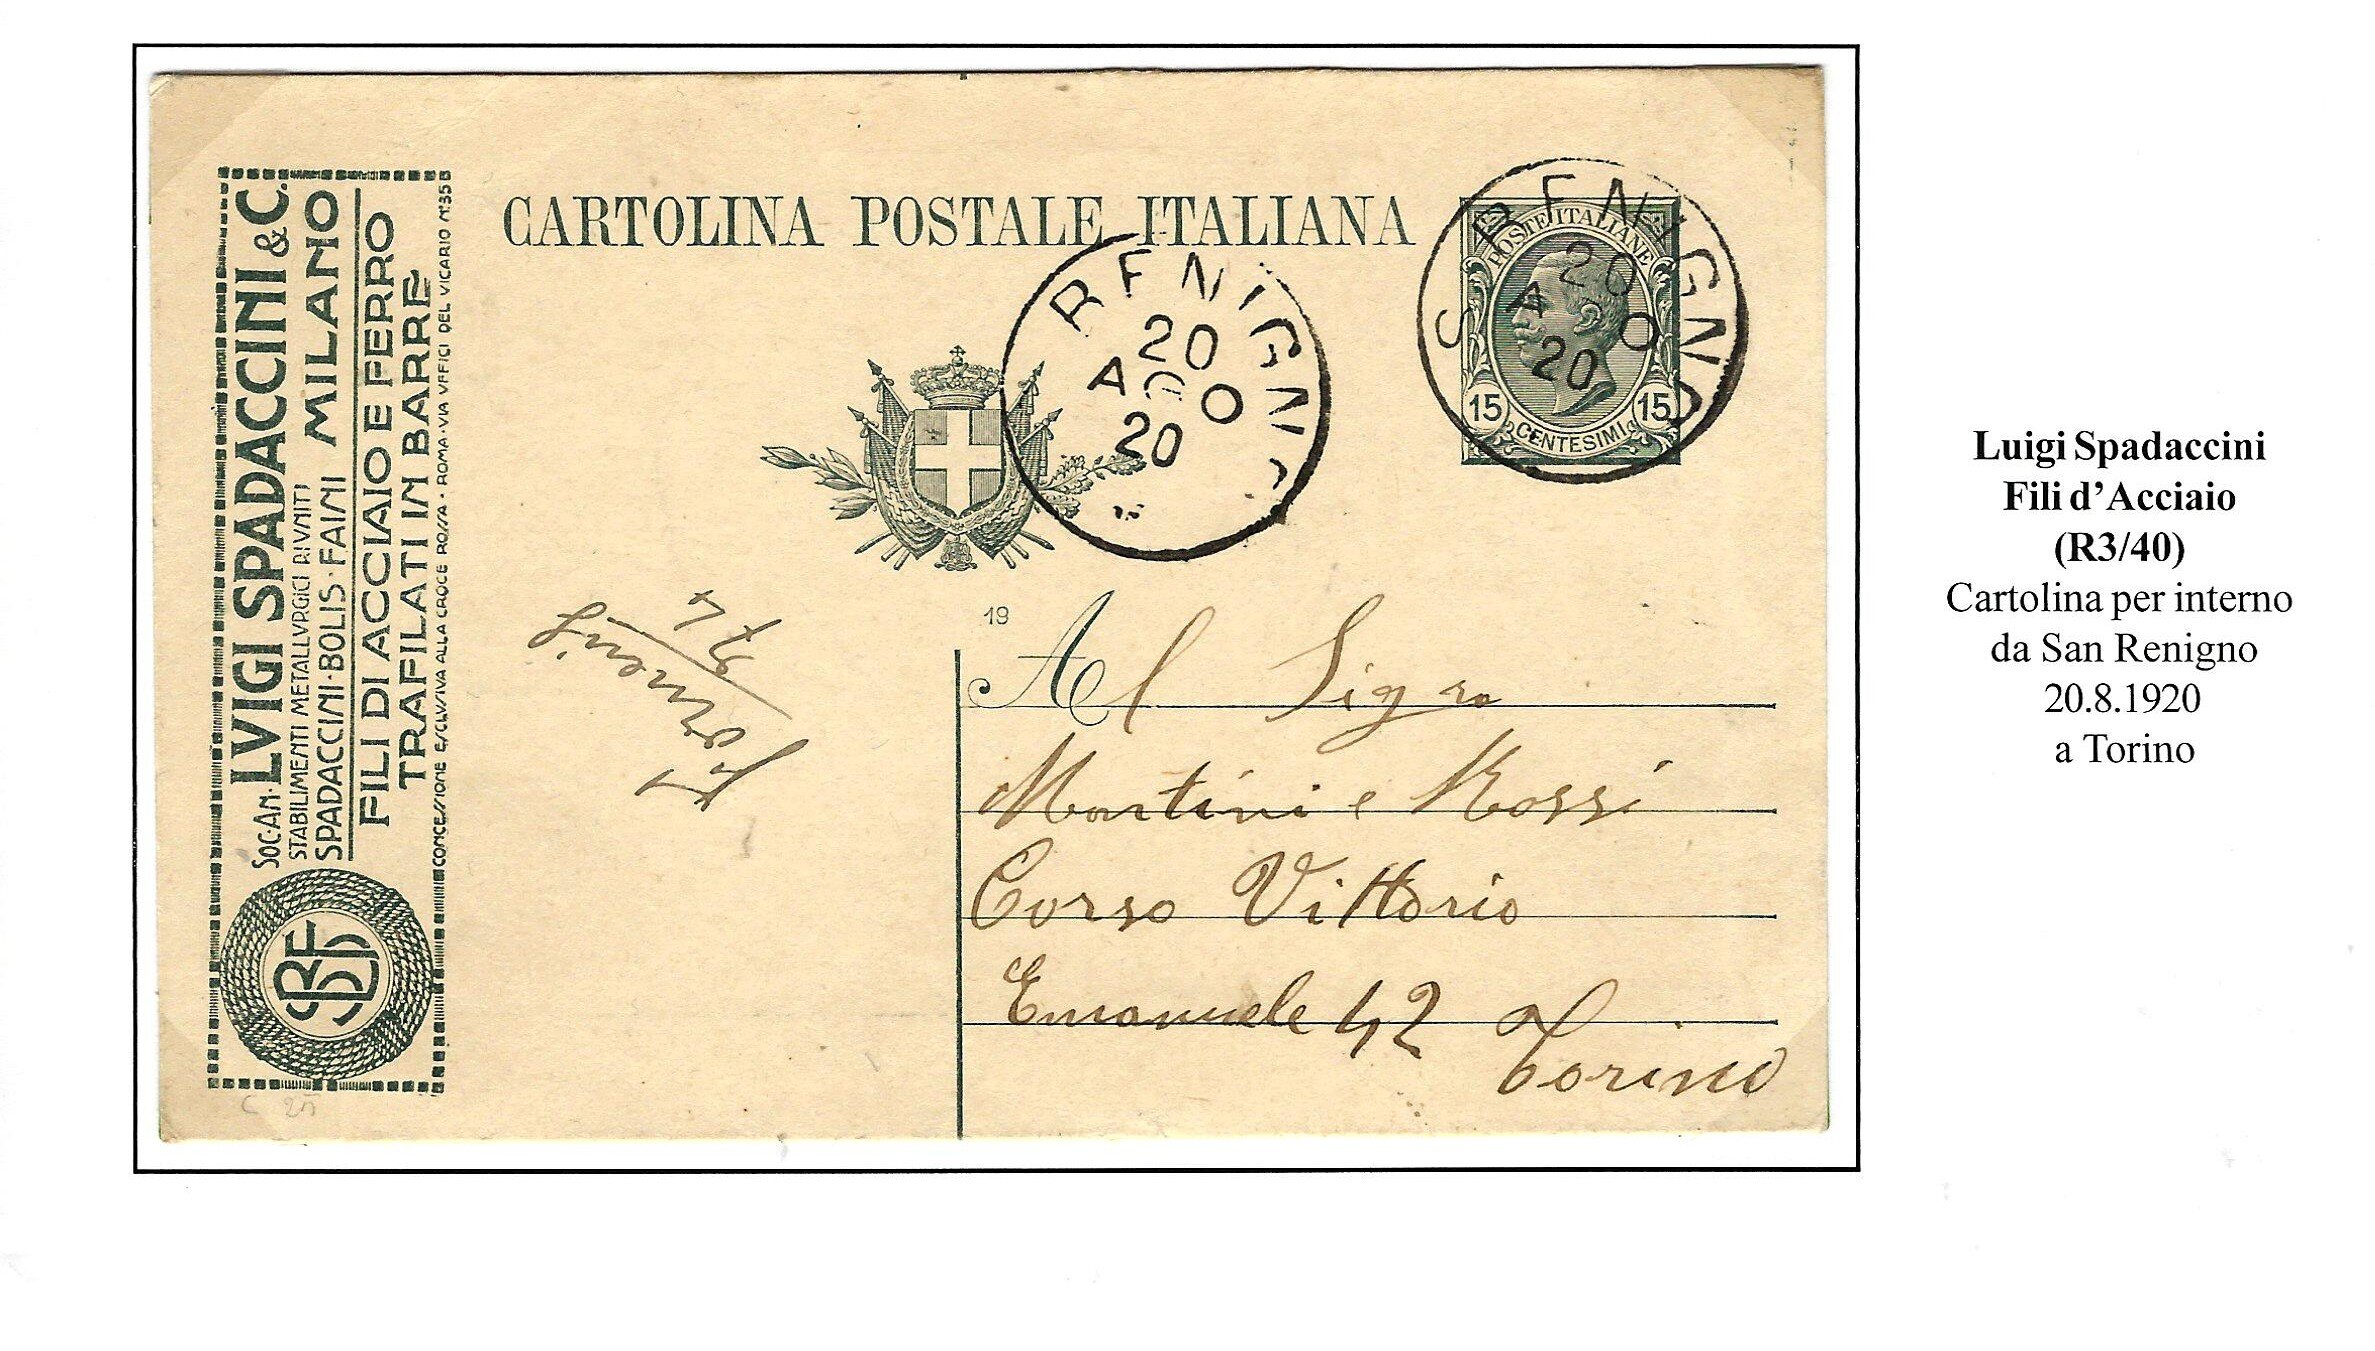 SOC·AN· LVIGI SPADACCINI & C.
STABILIMENTI METALLVRGICI RIVNITI
SPADACCINI·BOLIS·FAINI MILANO
FILI DI ACCIAIO E FERRO
TRAFILATI IN BARRE
CONCESSIONE ESCLVSIVA ALLA CROCE ROSSA · ROMA · VIA VFFICI DEL VICARIO N.35
CARTOLINA POSTALE ITALIANA
S. BENIGNO
20
AGO
20
S. BENIGNO
20
AGO
20
POSTE ITALIANE
15 15
CENTESIMI
19
Al Sigra
Martini e Rossi
Corso Vittorio
Emanuele 42 Torino
Luigi Spadaccini
Fili d’Acciaio
(R3/40)
Cartolina per interno
da San Renigno
20.8.1920
a Torino